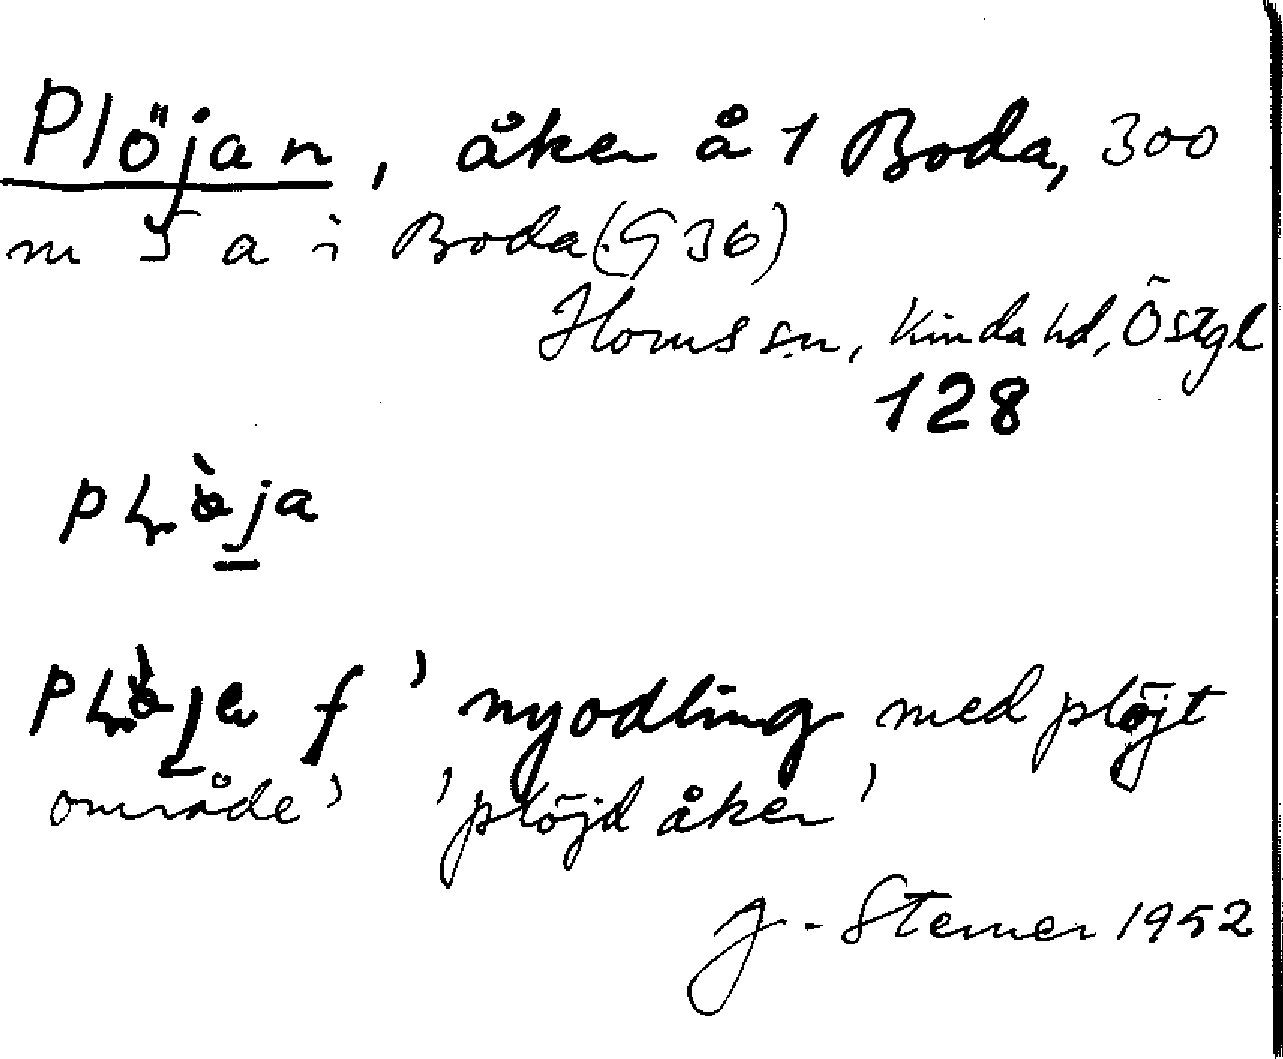 Plöjan, åker å 1 Boda, 300
m S a i Boda (G 36)
Horns sn, Kinda hd, Östgl
128
'nyodling med plöjt
område' 'plöjd åker'
G. Sterner 1952